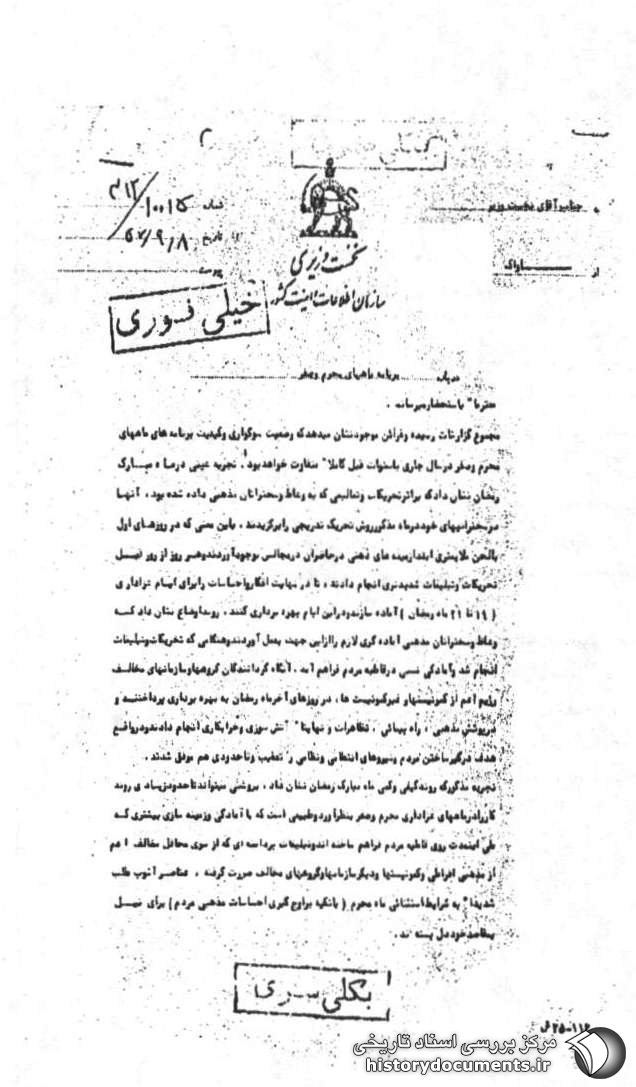 بکلی سری
به جناب آقای نخست وزیر
از ساواک
شماره ۱۰۰۱۵/۳۱۲
تاریخ ۵۷/۹/۸
پیوست
نخست وزیری
سازمان اطلاعات و امنیت کشور
خیلی فوری
درباره برنامه ماههای محرم وصفر
محترما" باستحضار میرساند .
مجموع گزارشات رسیده وقرائن موجود نشان میدهد که وضعیت سوگواری وکیفیت برنامه های ماههای
محرم وصفر در سال جاری باسنوات قبل کاملا" متفاوت خواهد بود . تجربه عینی در ماه مبارک
رمضان نشان داد که براثر تحریکات وتعالیمی که به وعاظ وسخنرانان مذهبی داده شده بود ، آنها
در سخنرانیهای خود در ماه مذکور روش تحریک تدریجی را برگزیدند . باین معنی که در روزهای اول
بالحن ملایمتری ابتدا زمینه های ذهنی در حاضران در مجالس بوجود آوردند وهر روز از روز قبل
تحریکات وتبلیغات شدیدتری انجام دادند ، تا در نهایت افکار واحساسات را برای ایام عزاداری
( ۱۹ تا ۲۱ ماه رمضان ) آماده سازند ودر این ایام بهره برداری کنند . روند اوضاع نشان داد که
وعاظ وسخنرانان مذهبی آماده گری لازم را از این جهت بعمل آوردند وهنگامی که تحریکات وتبلیغات
انجام شد وآمادگی نسبی در قاطبه مردم فراهم آمد . آنگاه گردانندگان گروهها وسازمانهای مخالف
رژیم اعم از کمونیستها وغیرکمونیست ها ، در روزهای آخر ماه رمضان به بهره برداری پرداختند و
در پوشش مذهبی ، راه پیمائی ، تظاهرات و نهایتا" آتش سوزی وخرابکاری انجام دادند ودر واقع
هدف درگیر ساختن مردم ونیروهای انتظامی ونظامی را تعقیب وتاحدودی هم موفق شدند .
تجربه مذکور که روند کیفی وکمی ماه مبارک رمضان نشان داد ، بروشنی میتواند تاحدود زیادی روند
کار را در ماههای عزاداری محرم وصفر بنظر آورد وطبیعی است که با آمادگی وزمینه سازی بیشتری که
طی اینمدت روی قاطبه مردم فراهم ساخته اند وتبلیغات پردامنه ای که از سوی محافل مخالف اعم
از مذهبی افراطی وکمونیستها ودیگر سازمانها وگروههای مخالف صورت گرفته ، عناصر آشوب طلب
شدیدا" به شرایط استثنائی ماه محرم ( باتکیه بر اوج گیری احساسات مذهبی مردم ) برای نیل
بمقاصد خود دل بسته اند .
بکلی سری
۱۱۶-۲۵ ق
مرکز بررسی اسناد تاریخی
historydocuments.ir